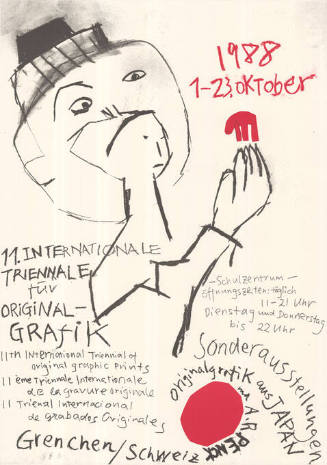 1988
1-23. OKTOBER
11. INTERNATIONALE
TRIENNALE
für
ORIGINAL-
GRAFIK
11th International Triennial of
original graphic Prints
11ème Triennale Internationale
de la gravure originale
11 Trienal Internacional
de Grabados Originales
Grenchen/Schweiz
-Schulzentrum-
Öffnungszeiten: täglich
11-21 Uhr
Dienstag und Donnerstag
bis 22 Uhr
Sonderausstellungen
Originalgrafik aus JAPAN
A.R. PENCK